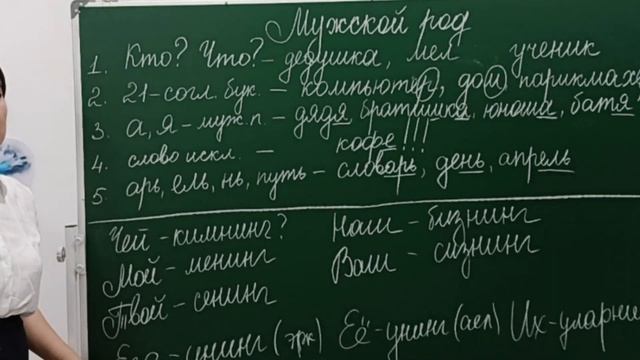 Мужской род
1. Кто? Что? – дедушка, мел ученик
2. 21-согл. бук. – компьютер, дом парикмах
3. а, я – муж.п. – дядя, братишка, юноша, батя
4. слово искл. – кофе!!!
5. арь, ель, нь, путь – словарь, день, апрель
Чей – кимнинг? Наш – бизнинг
Мой – менинг Ваш – сизнинг
Твой – сенинг
Его – унинг (эрк) Её – унинг (аёл) Их – уларнинг